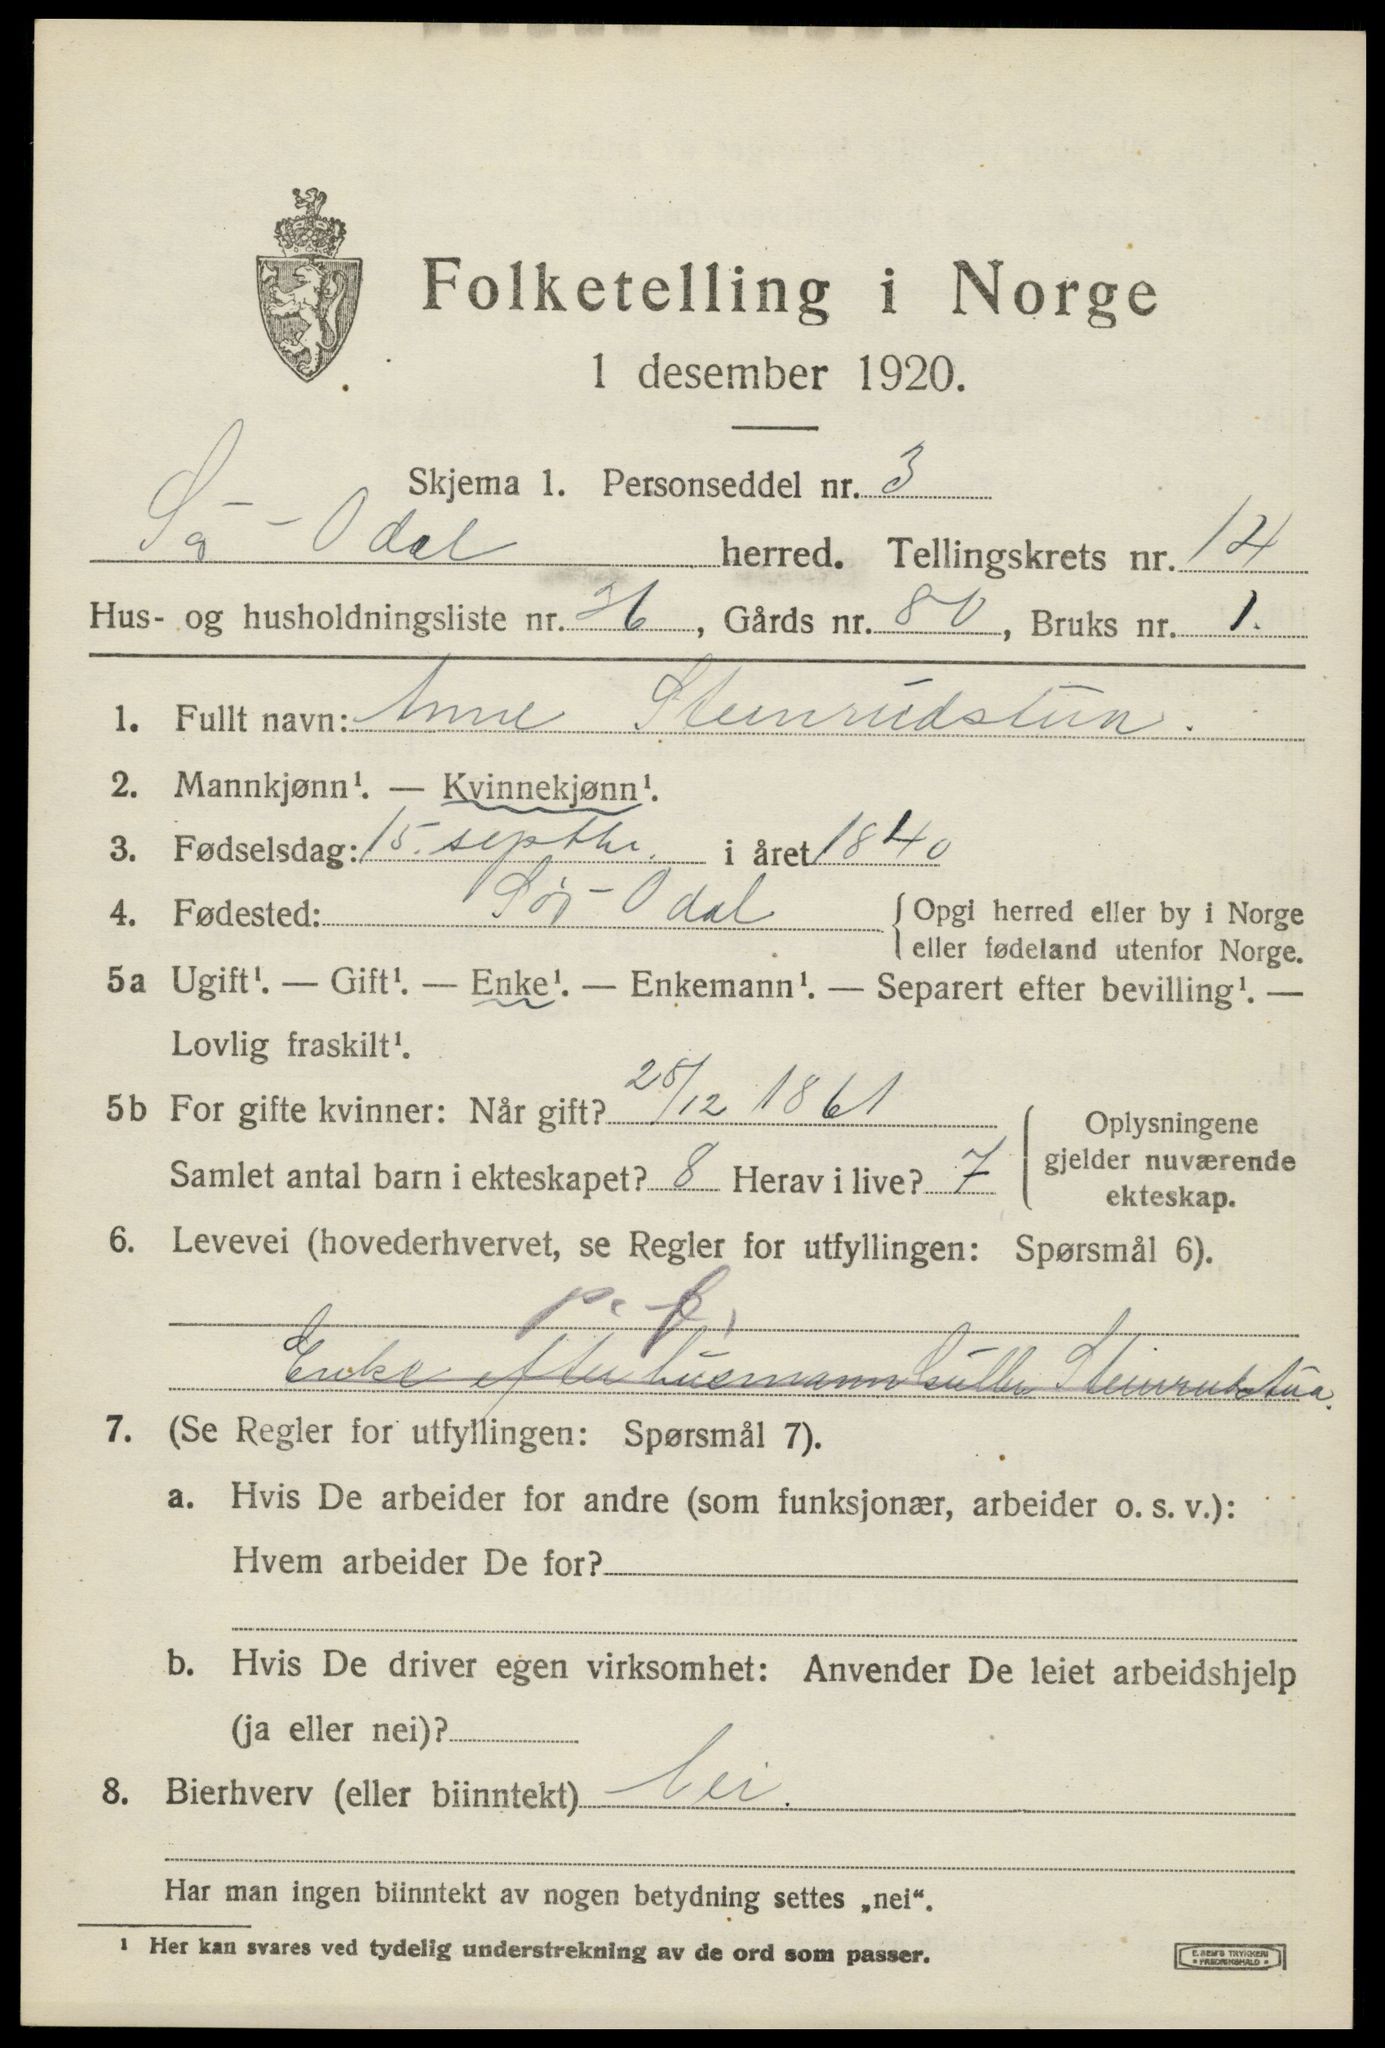 Folketelling i Norge
1 desember 1920.
Skjema 1. Personseddel nr. 3
Sø-Odal herred. Tellingskrets nr. 14
Hus- og husholdningsliste nr. 36, Gårds nr. 80, Bruks nr. 1.
1. Fullt navn: Anne Steinrudstua.
2. Mannkjønn¹. — Kvinnekjønn¹.
3. Fødselsdag: 15. septbr. i året 1840
4. Fødested: Sør-Odal {Opgi herred eller by i Norge
eller fødeland utenfor Norge.
5a Ugift¹. — Gift¹. — Enke¹. — Enkemann¹. — Separert efter bevilling¹. —
Lovlig fraskilt¹.
5b For gifte kvinner: Når gift? 28/12 1861
Samlet antal barn i ekteskapet? 8 Herav i live? 7
Oplysningene
gjelder nuværende
ekteskap.
6. Levevei (hovederhvervet, se Regler for utfyllingen: Spørsmål 6).
Enke efter husmann Steinrudstua.
7. (Se Regler for utfyllingen: Spørsmål 7).
a. Hvis De arbeider for andre (som funksjonær, arbeider o. s. v.):
Hvem arbeider De for?
b. Hvis De driver egen virksomhet: Anvender De leiet arbeidshjelp
(ja eller nei)?
8. Bierhverv (eller biinntekt) Nei.
Har man ingen biinntekt av nogen betydning settes „nei“.
¹ Her kan svares ved tydelig understrekning av de ord som passer.
E. SEM'S TRYKKERI
* FREDRIKSHALD *